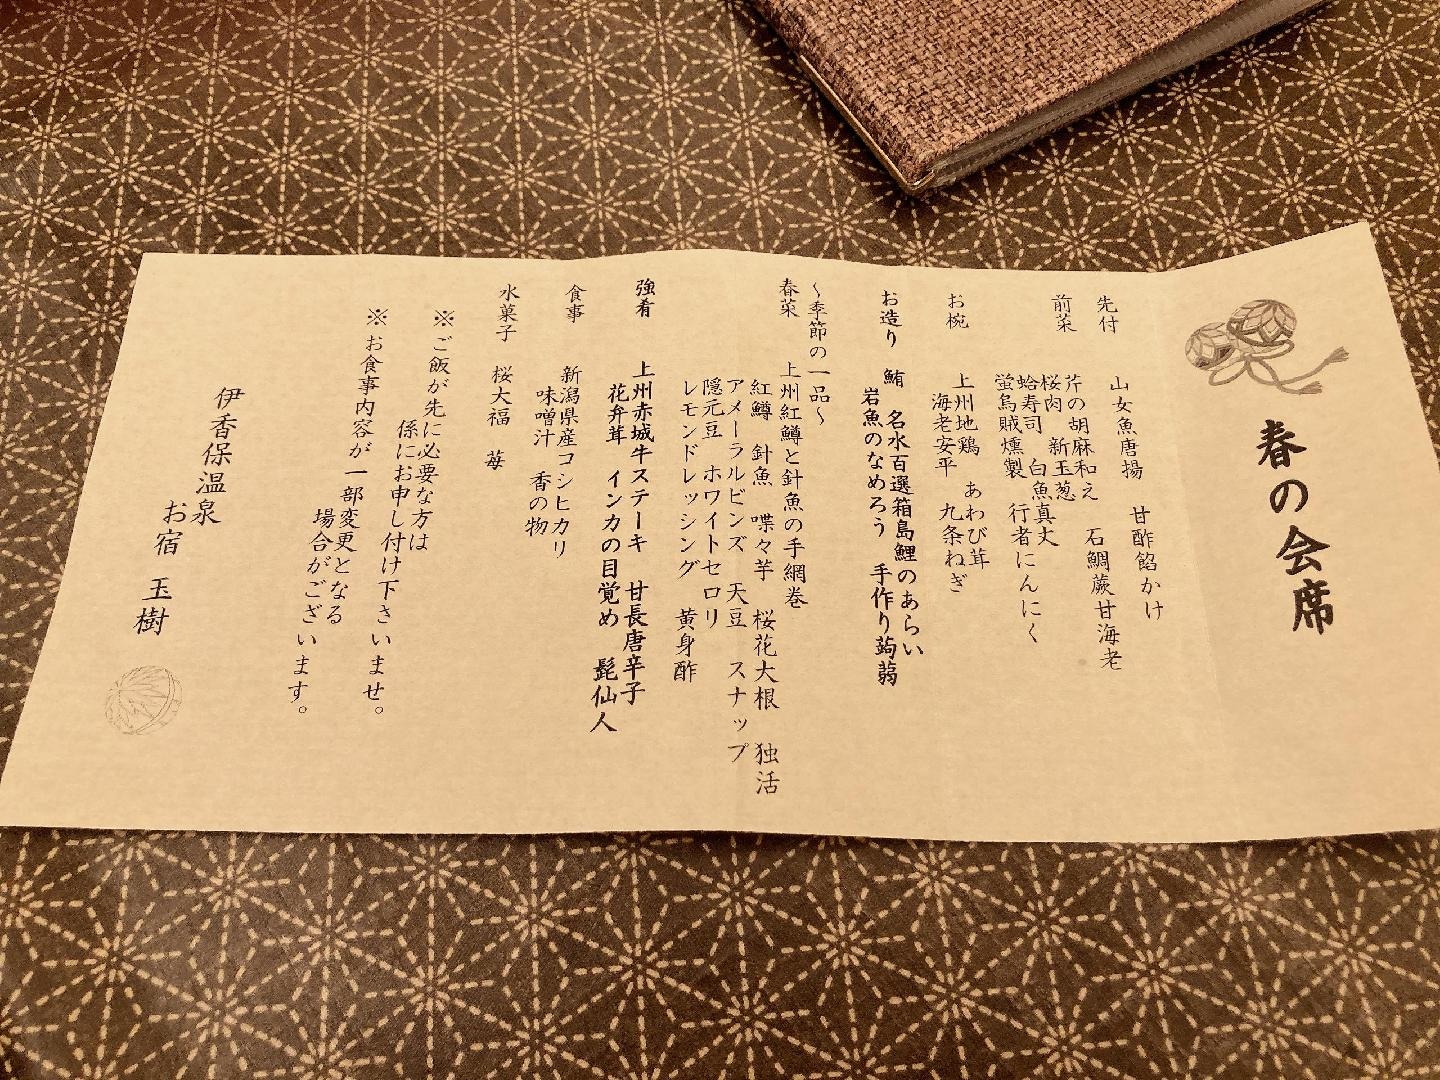 春の会席
先付 山女魚唐揚 甘酢餡かけ
前菜 芹の胡麻和え 石鯛蕨甘海老
桜肉 新玉葱
蛤寿司 白魚真丈
蛍烏賊燻製 行者にんにく
お椀 上州地鶏 あわび茸
海老安平 九条ねぎ
お造り 鮪 名水百選箱島鯉のあらい
岩魚のなめろう 手作り蒟蒻
～季節の一品～
春菜 上州紅鱒と針魚の手網巻
紅鱒 針魚 喋々芋 桜花大根 独活
アメーラルビンズ 天豆 スナップ
隠元豆 ホワイトセロリ
レモンドレッシング 黄身酢
強肴 上州赤城牛ステーキ 甘長唐辛子
花弁茸 インカの目覚め 髭仙人
食事 新潟県産コシヒカリ
味噌汁 香の物
水菓子 桜大福 苺
※ご飯が先に必要な方は
係にお申し付け下さいませ。
※お食事内容が一部変更となる
場合がございます。
伊香保温泉
お宿 玉樹